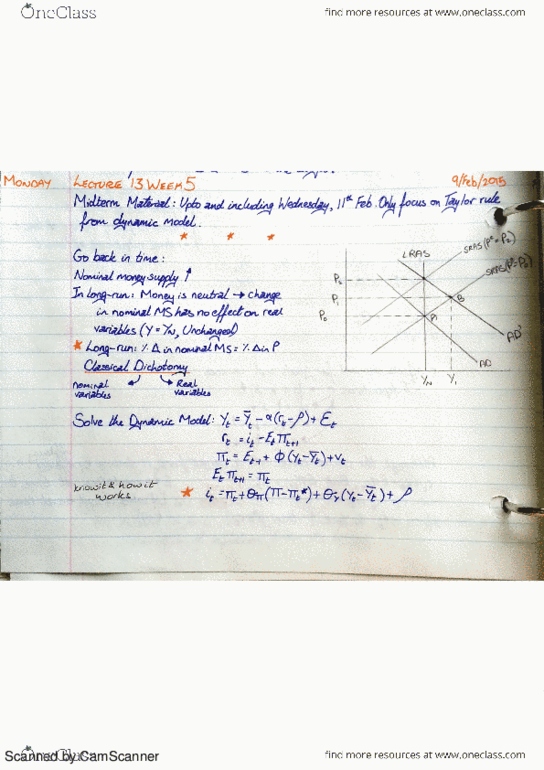 OneClass
find more resources at www.oneclass.com
MONDAY LECTURE 13 WEEK 5 9/Feb/2015
Midterm Material: Upto and including Wednesday, 11th Feb. Only focus on Taylor rule
from dynamic model.
* * *
Go back in time:
Nominal money supply ↑
In long-run: Money is neutral → change
in nominal MS has no effect on real
variables (Y = YN, Unchanged)
* Long-run: % Δ in nominal MS = % Δ in P
Classical Dichotomy
nominal variables
Real variables
LRAS
SRAS(Pe = P2)
SRAS(Pe = P0)
P2
P1
P0
B
A
AD'
AD
YN Y1
Solve the Dynamic Model: Yt = Ȳt - α(rt - ρ) + Et
rt = it - Et πt+1
πt = Et-1 + φ(Yt - Ȳt) + vt
Et πt+1 = πt
know it & how it
works
* it = πt + θπ(π - πt*) + θY(Yt - Ȳt) + ρ
OneClass
Scanned by CamScanner
find more resources at www.oneclass.com